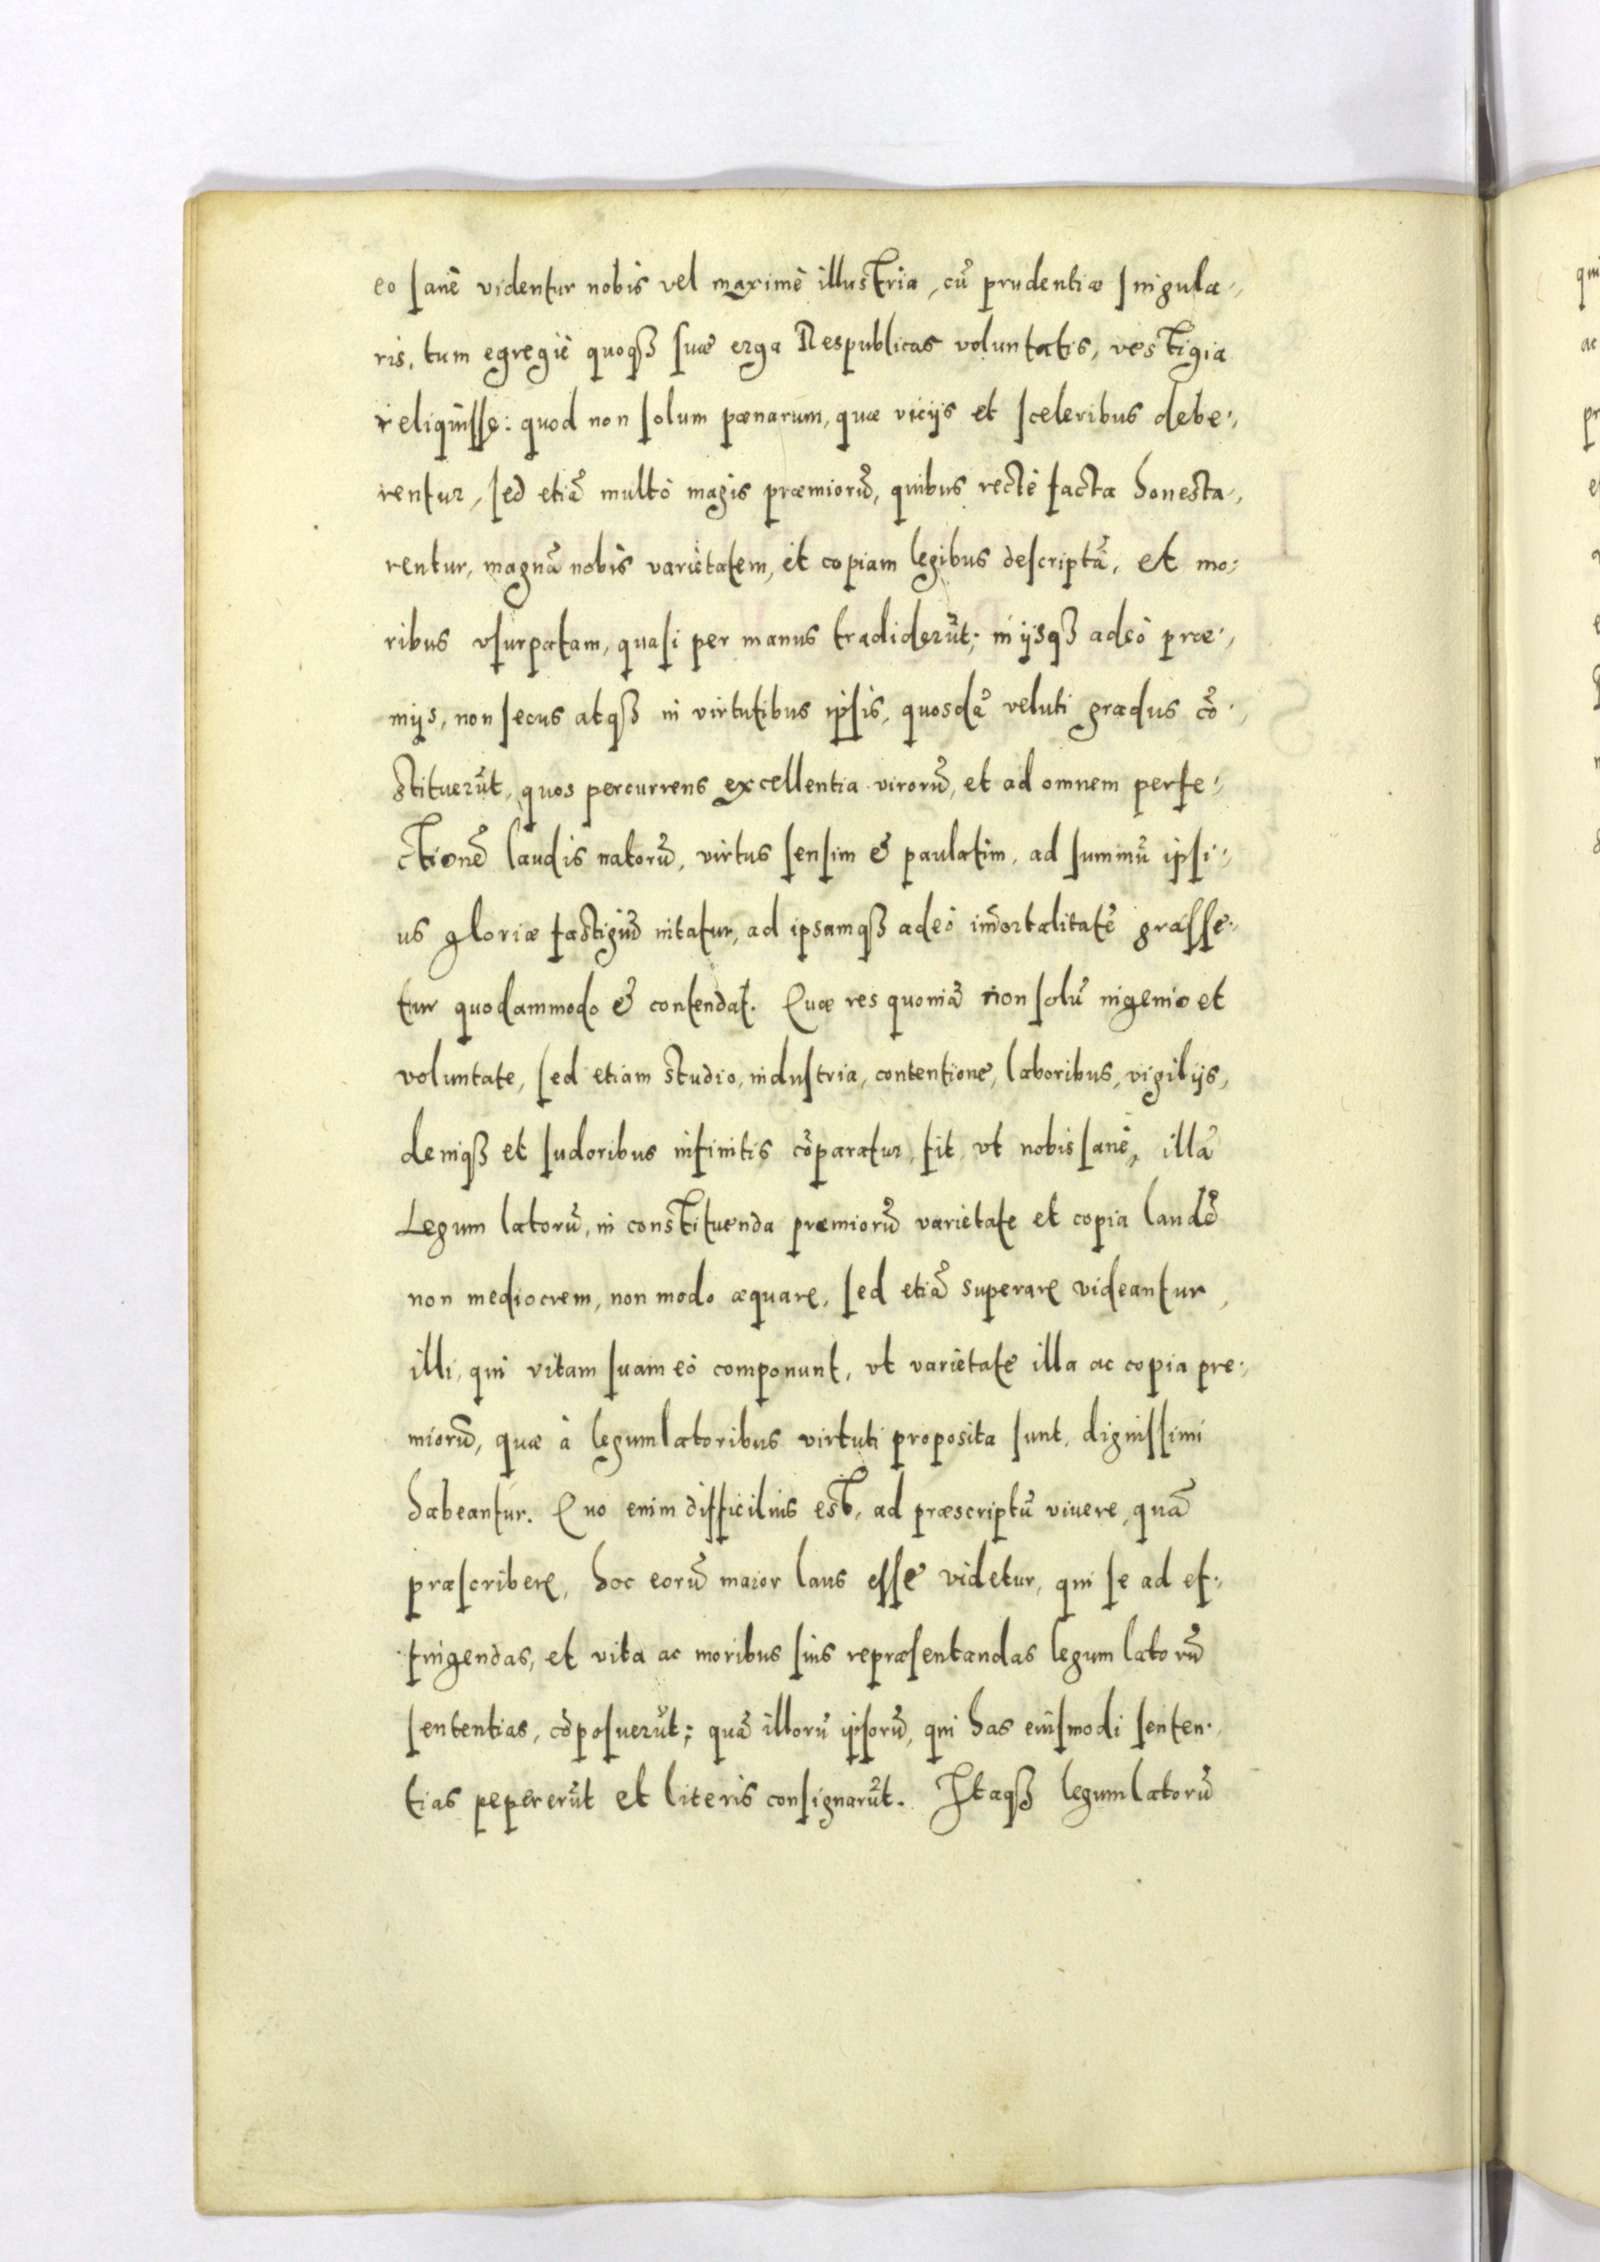 eo sanè videntur nobis vel maximè illustria, cũ prudentiæ singula-
ris, tum egregiè quoqꝫ suæ erga Respublicas voluntatis, vestigia
reliquisse: quod non solum pœnarum, quæ vicijs et sceleribus debe-
rentur, sed etiã multò magis præmiorũ, quibus rectè facta honesta-
rentur, magnã nobis varietatem, et copiam legibus descriptã, et mo-
ribus vsurpatam, quasi per manus tradiderũt; in ijsqꝫ adeò præ-
mijs, non secus atqꝫ in virtutibus ipsis, quosdã veluti gradus cõ-
stituerũt, quos percurrens excellentia virorũ, et ad omnem perfe-
ctionẽ laudis natorũ, virtus sensim & paulatim, ad summũ ipsi-
us gloriæ fastigiũ nitatur, ad ipsamqꝫ adeò im̃ortalitatẽ grasse-
tur quodammodo & contendat. Quæ res quoniã non solũ ingenio et
voluntate, sed etiam studio, industria, contentione, laboribus, vigilijs,
deniqꝫ et sudoribus infinitis cõparatur, fit, vt nobis sanè, illã
Legum latorũ, in constituenda præmiorũ varietate et copia laudẽ
non mediocrem, non modo æquare, sed etiã superare videantur,
illi, qui vitam suam eò componunt, vt varietate illa ac copia pre-
miorũ, quæ à legumlatoribus virtuti proposita sunt, dignissimi
habeantur. Quo enim difficilius est, ad præscriptũ viuere, quã
præscribere, hoc eorũ maior laus esse videtur, qui se ad ef-
fingendas, et vita ac moribus suis repræsentandas legum latorũ
sententias, cõposuerũt; quã illorũ ipsorũ, qui has eiusmodi senten-
tias pepererũt et literis consignarũt. Itaqꝫ legumlatorũ